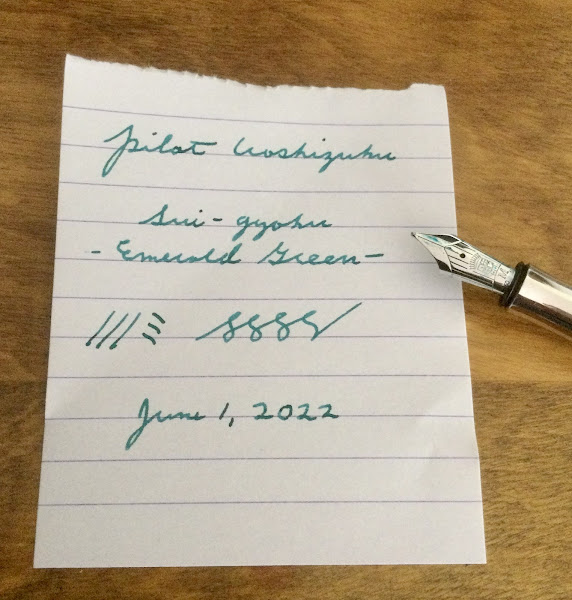 Pilot Iroshizuku
Sui-gyoku
- Emerald Green -
June 1, 2022